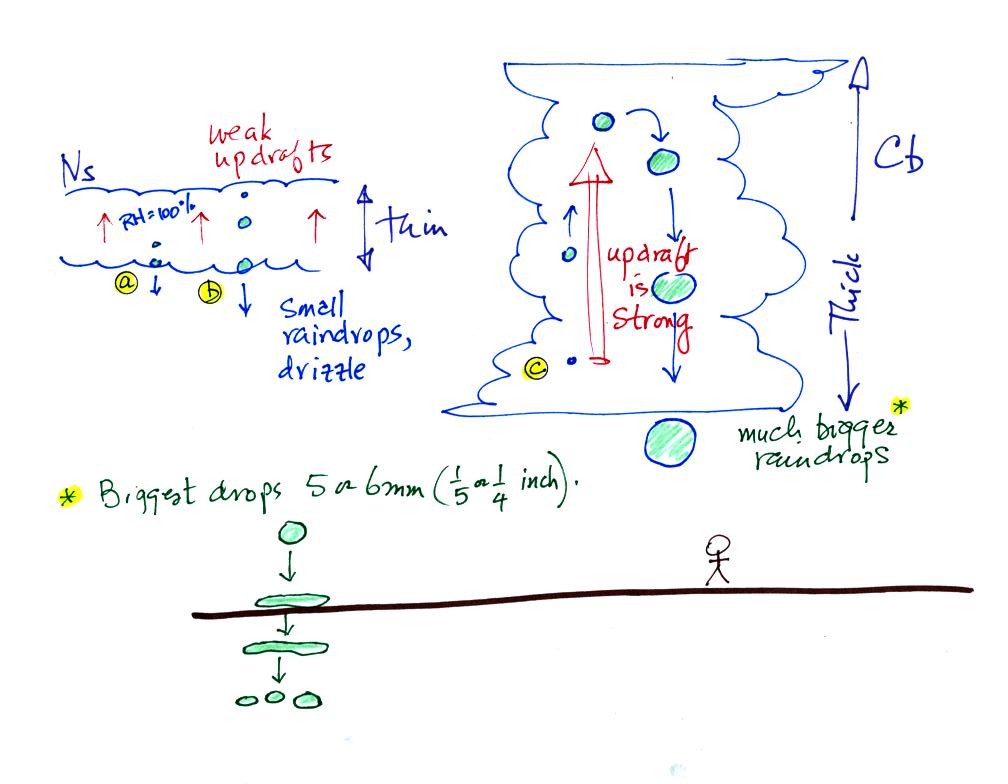 Ns
weak
updrafts
RH=100%
thin
a
b
small
raindrops,
drizzle
updraft
is
strong
c
Cb
Thick
much bigger*
raindrops
* Biggest drops 5 or 6mm (1/5 or 1/4 inch).